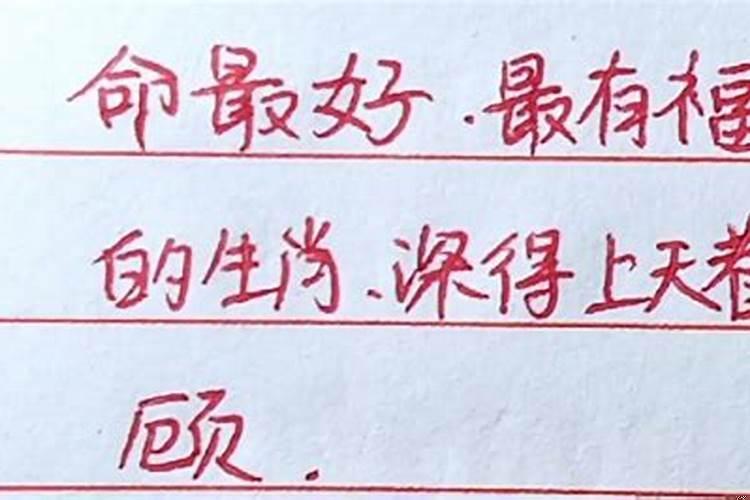 命最好.最有福
的生肖、深得上天眷
顾.